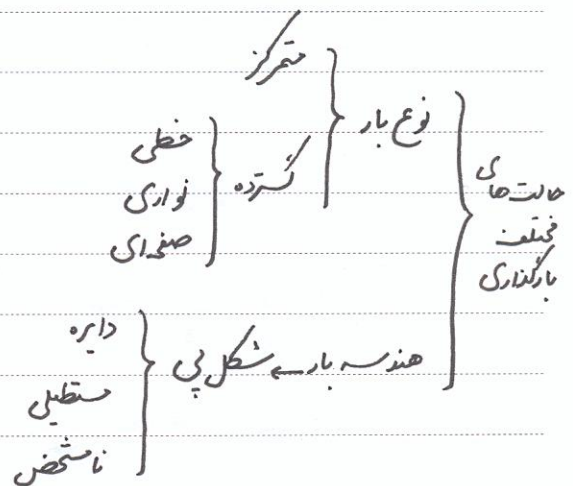 حالت های
مختلف
بارگذاری
نوع بار
متمرکز
گسترده
خطی
نواری
صفحه ای
هندسه بار ← شکل پی
دایره
مستطیلی
نامشخص